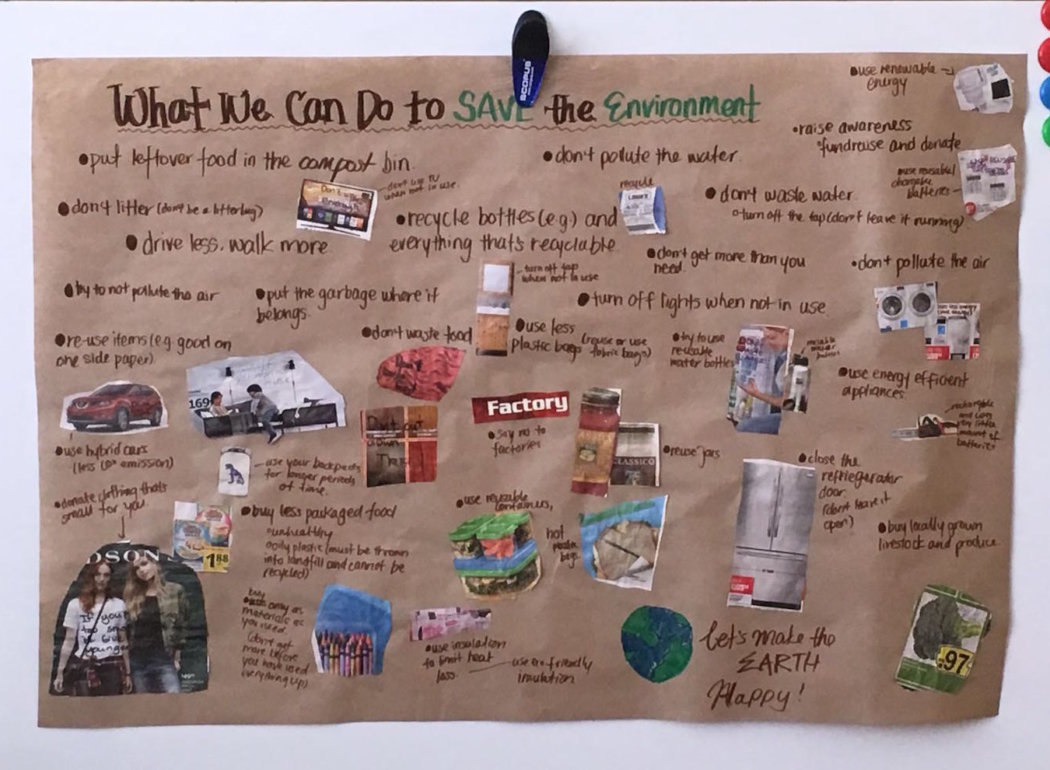 SCOPUS
What We Can Do to SAVE the Environment
•use renewable
energy
•raise awareness
fundraise and donate
•put leftover food in the compost bin.
•don't pollute the water.
don't use TV
when not in use.
recycle
•use reusable/
batteries
•don't litter (don't be a litterbug)
•recycle bottles (e.g.) and
everything that's recyclable
•don't waste water
•turn off the tap (don't leave it running)
•drive less, walk more.
•don't get more than you
need.
•don't pollute the air
turn off tap
when not in use
•try to not pollute the air
•put the garbage where it
belongs.
•turn off lights when not in use.
•re-use items (e.g good on
one side paper)
•don't waste food
•use less
plastic bags (reuse or use
fabric bags)
•try to use
reusable
water bottles
•use energy efficient
appliances.
169
Don't cut
down
Trees
Factory
•say no to
factories
CLASSICO
•reuse jars
rechargable
and uses
very little
amount of
batteries
•use hybrid cars
(less CO² emission)
use your backpacks
for longer periods
of time.
•close the
refriegerador
door
(don't leave it
open)
•donate clothing that's
small for you.
1.88
•buy less packaged food
•unhealthy
•oily plastic (must be thrown
into landfill and cannot be
recycled)
•use reusable
containers,
not
plastic
bags
•buy locally grown
livestock and produce.
DSON'S
If your
too small
to give
younger
buy
only as
materials as
you need.
(don't get
more before
you have used
everything up)
•use insulation
to limit heat
loss.
use eco-friendly
insulation
Let's make the
EARTH
Happy!
.97